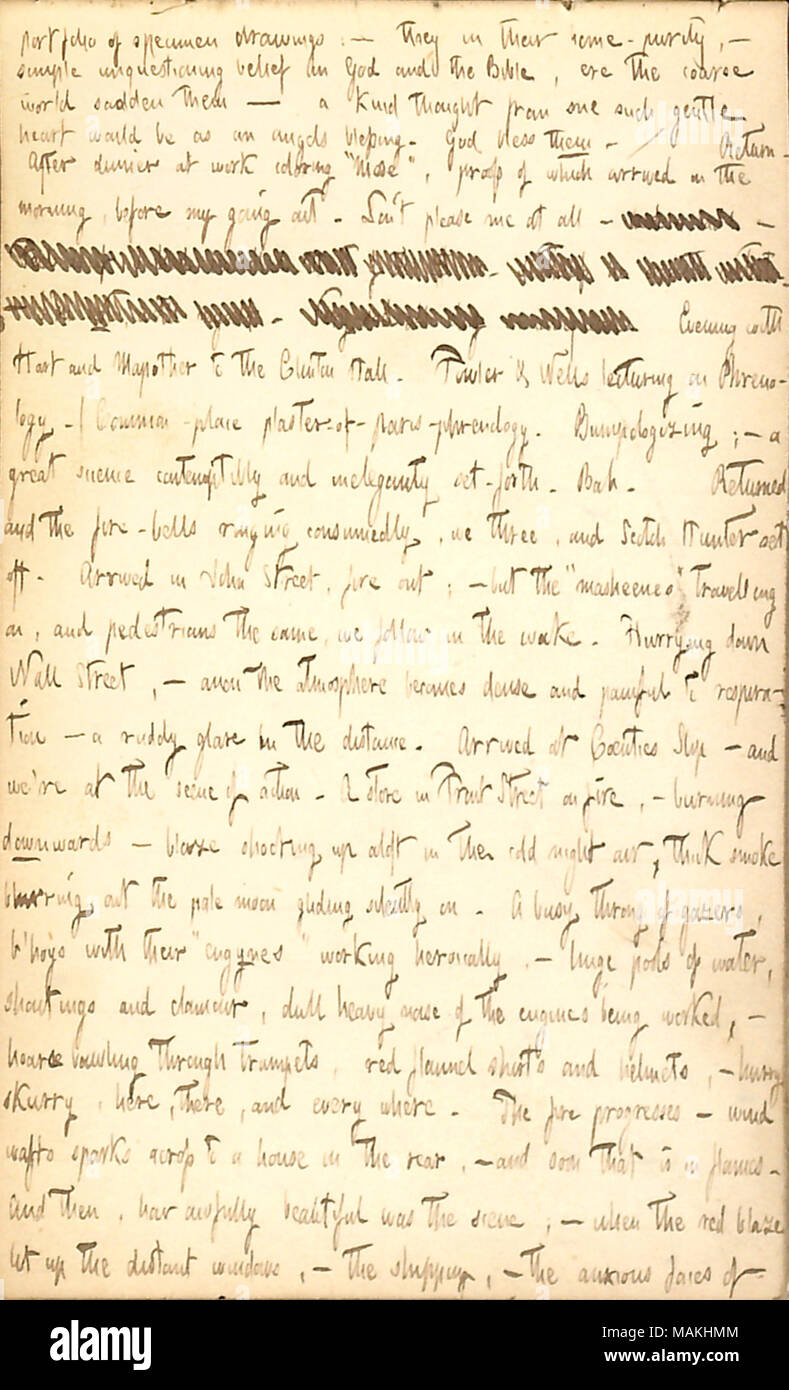 portfolio of specimen drawings; — they in their home-purity, —
simple unquestioning belief in God and the Bible, ere the coarse
world sadden them — a kind thought from one such gentle
heart would be as an angels blessing. God bless them. / Return.
After dinner at work coloring "Mose", proofs of which arrived in the
morning, before my going out. Don't please me at all — —
Evening with
Hart and Mapother to the Clinton Hall. Fowler & Wells lecturing on Phreno-
logy. / Common-place plaster-of-paris-phrenology. Bumpologizing; — a
great science contemptibly and inelegantly set-forth. Bah. Returned
and the fire-bells ringing consumedly, we three, and Scotch Hunter set
off. Arrived in John Street, fire out; — but the "masheenes" travelling
on, and pedestrians the same, we follow in the wake. Hurrying down
Wall Street, — anon the atmosphere becomes dense and painful to respira-
tion — a ruddy glare in the distance. Arrived at Coenties Slip — and
we're at the scene of action. A store in Front Street on fire, — burning
downwards — blaze shooting up aloft in the cold night air, thick smoke
blurring out the pale moon gliding silently on. A busy throng of gazers,
b'hoys with their "engynes" working heroically, — huge pools of water,
shoutings and clamour, dull heavy noise of the engines being worked, —
hoarse bawling through trumpets, red flannel shirts and helmets, — hurry
skurry, here, there, and every where. The fire progresses — wind
wafts sparks across to a house in the rear, — and soon that is in flames.
And then, how awfully beautiful was the scene; — when the red blaze
lit up the distant windows, — the shipping, — the anxious faces of
alamy
Image ID: MAKHMM
www.alamy.com